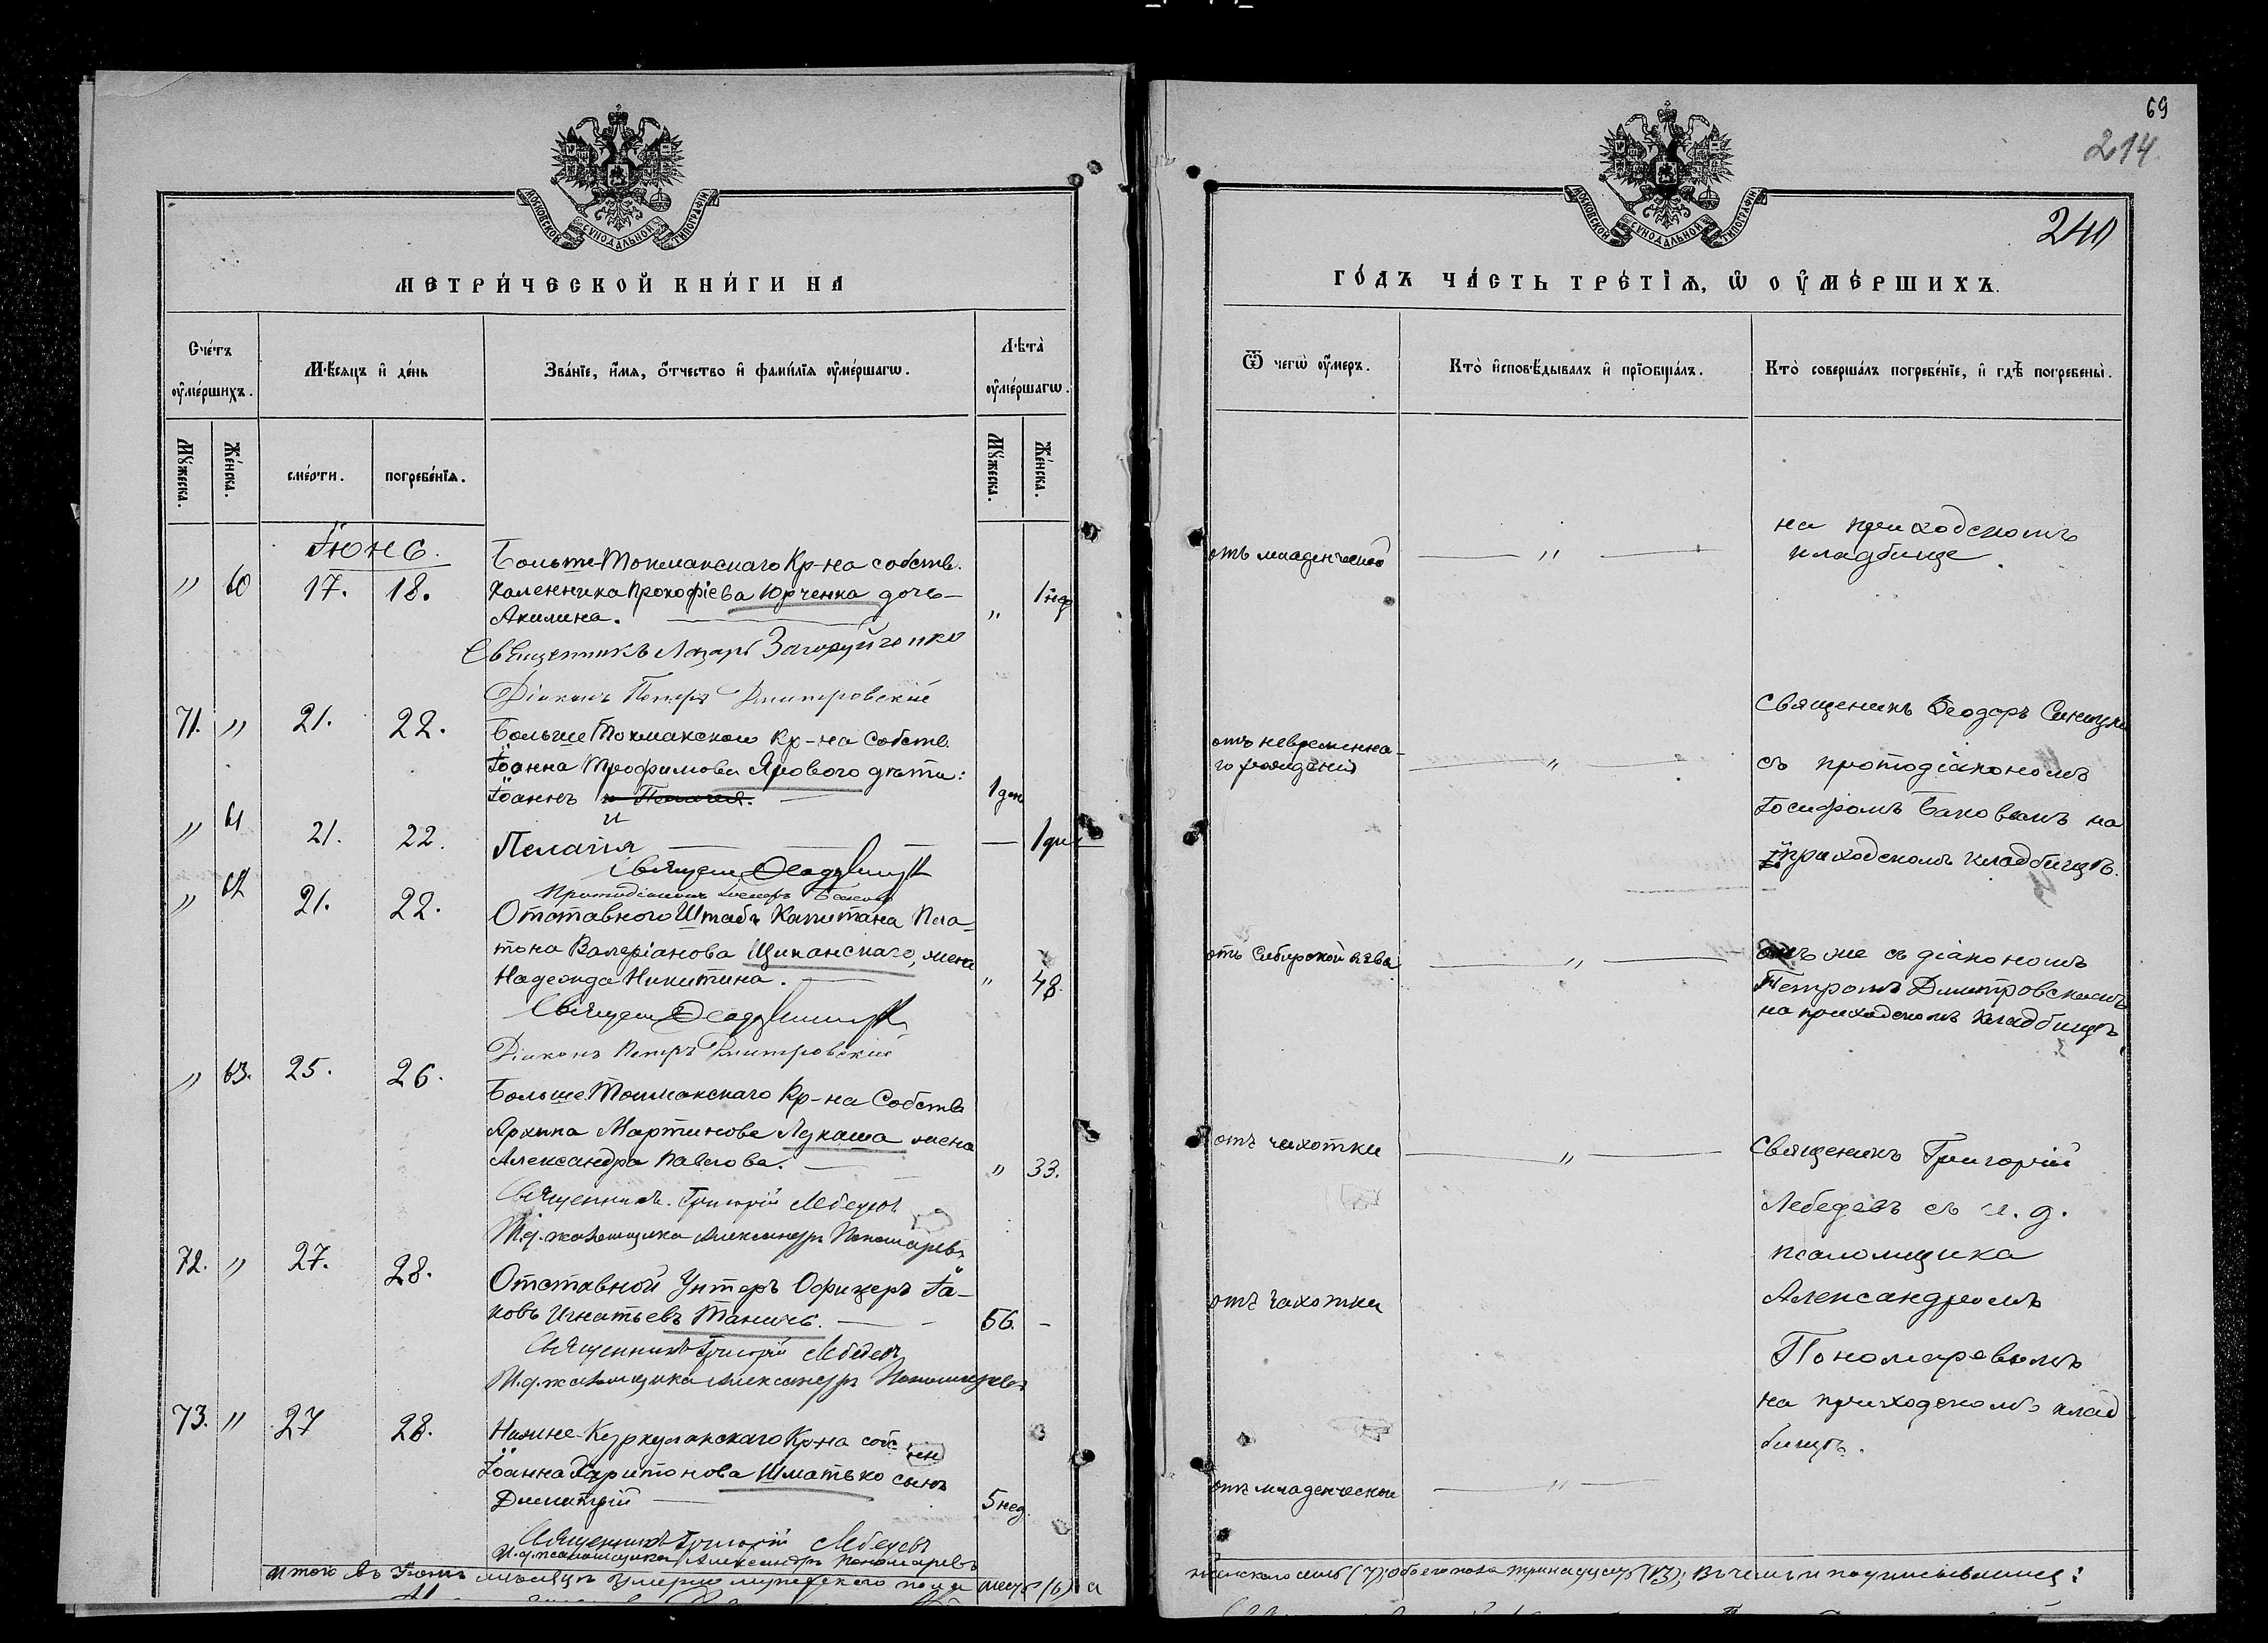 МОСКОВСКОЙ СѴНОДАЛЬНОЙ ТИПОГРАФІИ
МЕТРИ́ЧЕСКОЙ КНИ́ГИ НА
Сче́тъ ᲂу҆ме́ршихъ.
Мѣ́сяцъ и҆ де́нь
Зва́нїе, и҆́мѧ, ѻ҆́тчество и҆ фами́лїѧ ᲂу҆ме́ршагѡ.
Лѣта̀ ᲂу҆ме́ршагѡ.
Мꙋ́жеска.
Же́нска.
сме́рти.
погребе́нїѧ.
Мꙋ́жеска.
Же́нска.
Іюнь.
Больше-Токмакскаго Кр-на собств.
" 60 17. 18. Каленника Прокофіева Юрченка дочь— 1 нед
Акилина. "
Священникъ Лазарь Загоруйченко
Діаконъ Петръ Дмитровскій
71. " 21. 22. Больше Токмакскаго Кр-на Собств.
Іоанна Трофимова Ярового дѣти:
Іоаннъ и Пелагія. 1 ден
и
" 61 21. 22. Пелагія — — — 1 дн
Священ Феодоръ
Протодіаконъ Іосифъ Баковъ
" 62 21. 22. Отставного Штабъ Капитана Пла-
тона Валеріанова Щипанскаго, жена
Надежда Никитина. " 48.
Священ Феодоръ
Діаконъ Петръ Дмитровскій
" 63. 25. 26. Больше Токмакскаго Кр-на Собств
Архипа Мартинова Лукаша жена
Александра Павлова. " 33.
Священникъ Григорій Лебедевъ
И.д. псаломщика Александръ Пономаревъ
72. " 27. 28. Отставной Унтеръ Офицеръ Іа-
ковъ Игнатьевъ Таничь. 56. -
Священникъ Григорій Лебедевъ
И.д. псаломщика Александръ Пономаревъ
73. " 27 28. Нижне-Куркулакскаго Кр-на собс
Іоанна Харитонова Шматько сынъ
Димитрій 5 нед.
Священникъ Григорій Лебедевъ
И.д. псаломщика Александръ Пономаревъ
Итого въ Іюнѣ мѣсяцѣ умерло мужескаго пола шесть (6) а
69
214
240
МОСКОВСКОЙ СѴНОДАЛЬНОЙ ТИПОГРАФІИ
ГО́ДЪ ЧА́СТЬ ТРЕ́ТЇѦ, Ѡ҆ ОУ҆МЕ́РШИХЪ.
Ѿ чегѡ̀ ᲂу҆́меръ.
Кто̀ и҆сповѣ́дывалъ и҆ прїѡбща́лъ.
Кто̀ соверша́лъ погребе́нїе, и҆ гдѣ̀ погребены̀.
отъ младенческой — " — на приходскомъ
кладбище.
отъ невременна-
го рожденія — " —
Священикъ Ѳеодоръ
съ протодіакономъ
Іосифомъ Баковымъ на
приходскомъ кладбищѣ.
отъ Сибирской язвы — " — онъ же съ діакономъ
Петромъ Дмитровскимъ
на приходскомъ кладбищѣ
отъ чахотки — " — Священикъ Григорій
Лебедевъ съ и. д.
псаломщика
отъ чахотки Александромъ
Пономаревымъ
на приходскомъ клад
бищѣ.
отъ младенческой — " —
женскаго семь (7); обоего пола тринадцать (13); Въ чемъ и подписываемся: